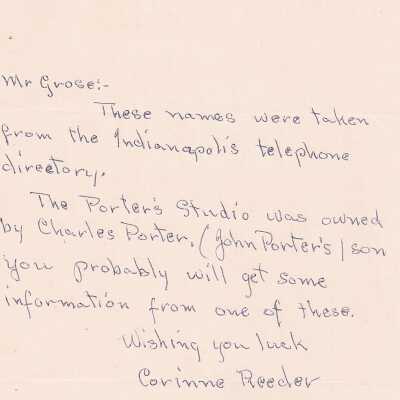 Mr Grose:-
These names were taken
from the Indianapolis telephone
directory.
The Porter's Studio was owned
by Charles Porter. (John Porter's) son
you probably will get some
information from one of these.
Wishing you luck
Corinne Reeder